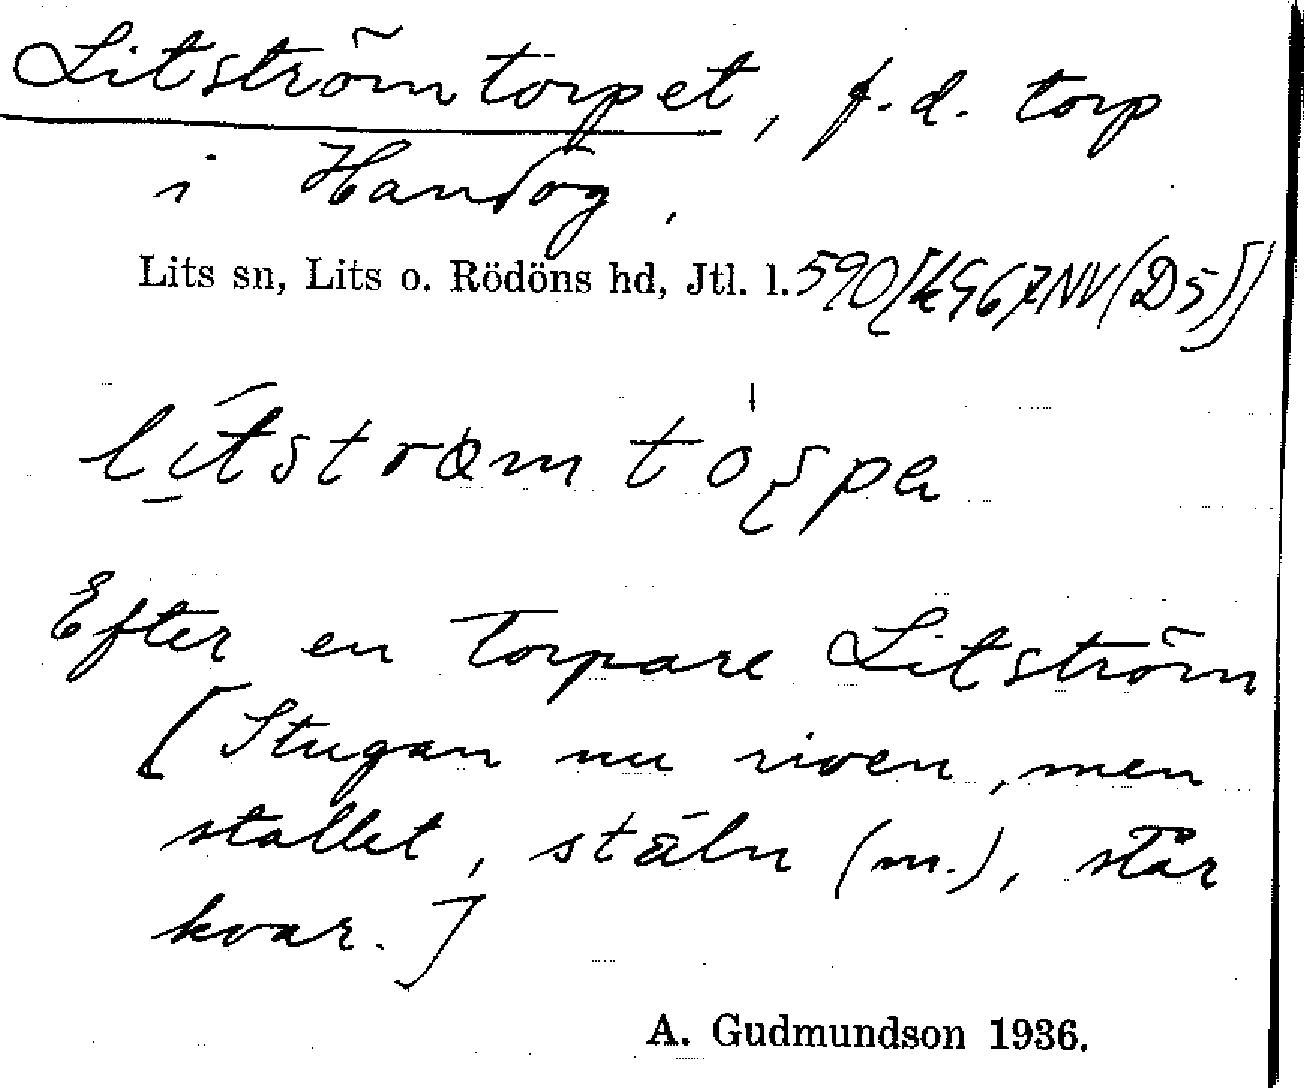 Litströmtorpet, f.d. torp
i Handog.
Lits sn, Lits o. Rödöns hd, Jtl. l. 590
Efter en torpare Litström
[Stugan nu riven, men
stallet, staln (m.), står
kvar.]
A. Gudmundson 1936.